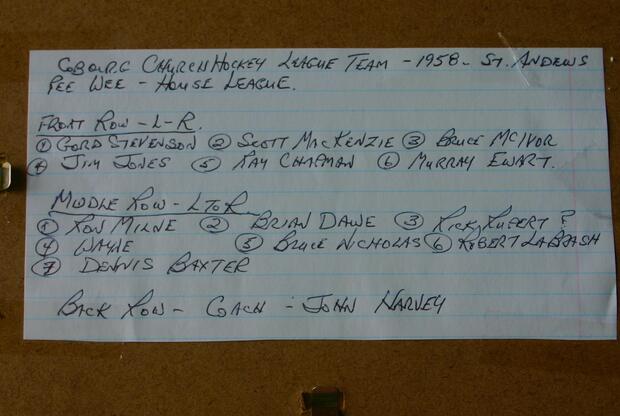 COBOURG CHURCH HOCKEY LEAGUE TEAM - 1958 - ST. ANDEWS
PEE WEE - HOUSE LEAGUE.
FRONT ROW - L - R.
① GORD STEVENSON ② SCOTT MACKENZIE ③ BRUCE MCIVOR
4 JIM JONES ⑤ RAY CHAPMAN ⑥ MURRAY EWART.
MIDDLE ROW - L TO R
① RON MILNE ② BRIAN DAWE ③ RICKY RUPERT ?
④ WAYNE ⑤ BRUCE NICHOLAS ⑥ ROBERT LABRASH
⑦ DENNIS BAXTER
BACK ROW - COACH - JOHN HARVEY